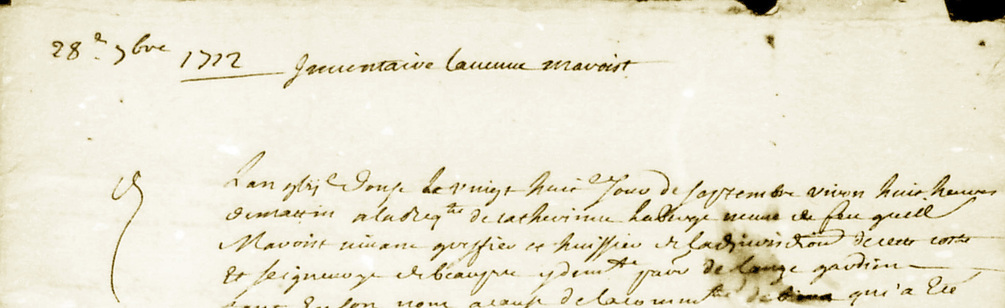 28e 7bre 1712 Inventaire la veuve Marois
Lan gbij C douze Le vingt huite Jour de septembre viron huit heures
du mattin a la Reqte de Catherinne Laberge veuve de feu guill
Marois vivant greffier et huissier de la Jurisdiction de cette coste
Et seigneurye de beaupre y demte parr de Lange gardien
tant En son nom acause de la commte de biens qu'a Ete